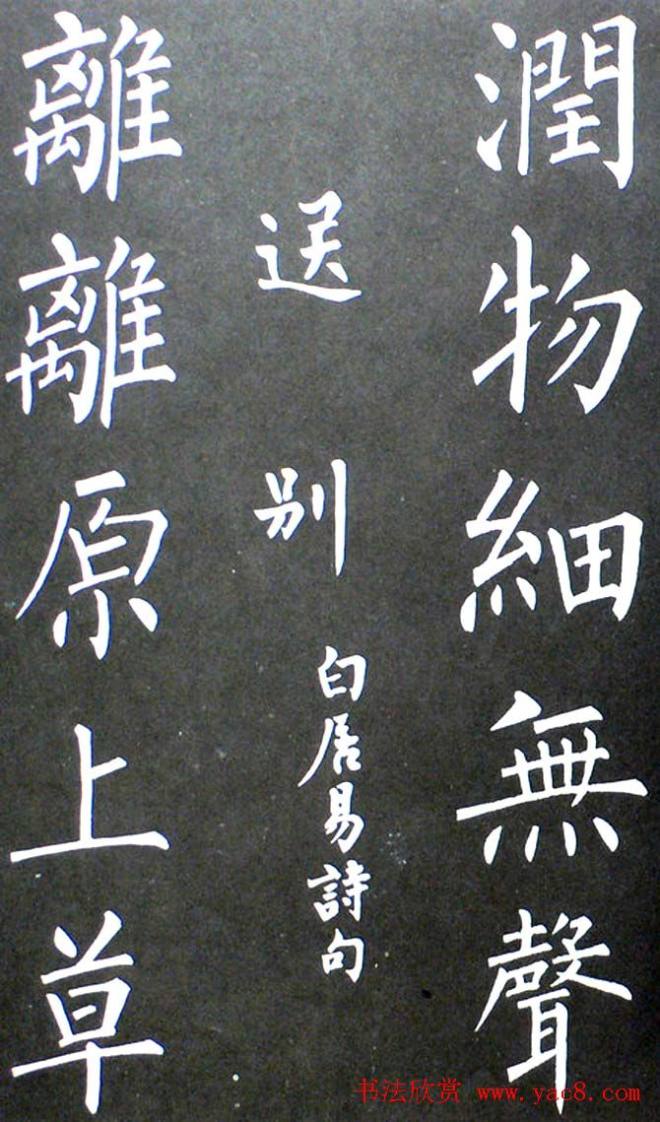 潤物細無聲
送别
白居易詩句
離離原上草
书法欣赏 www.yac8.com